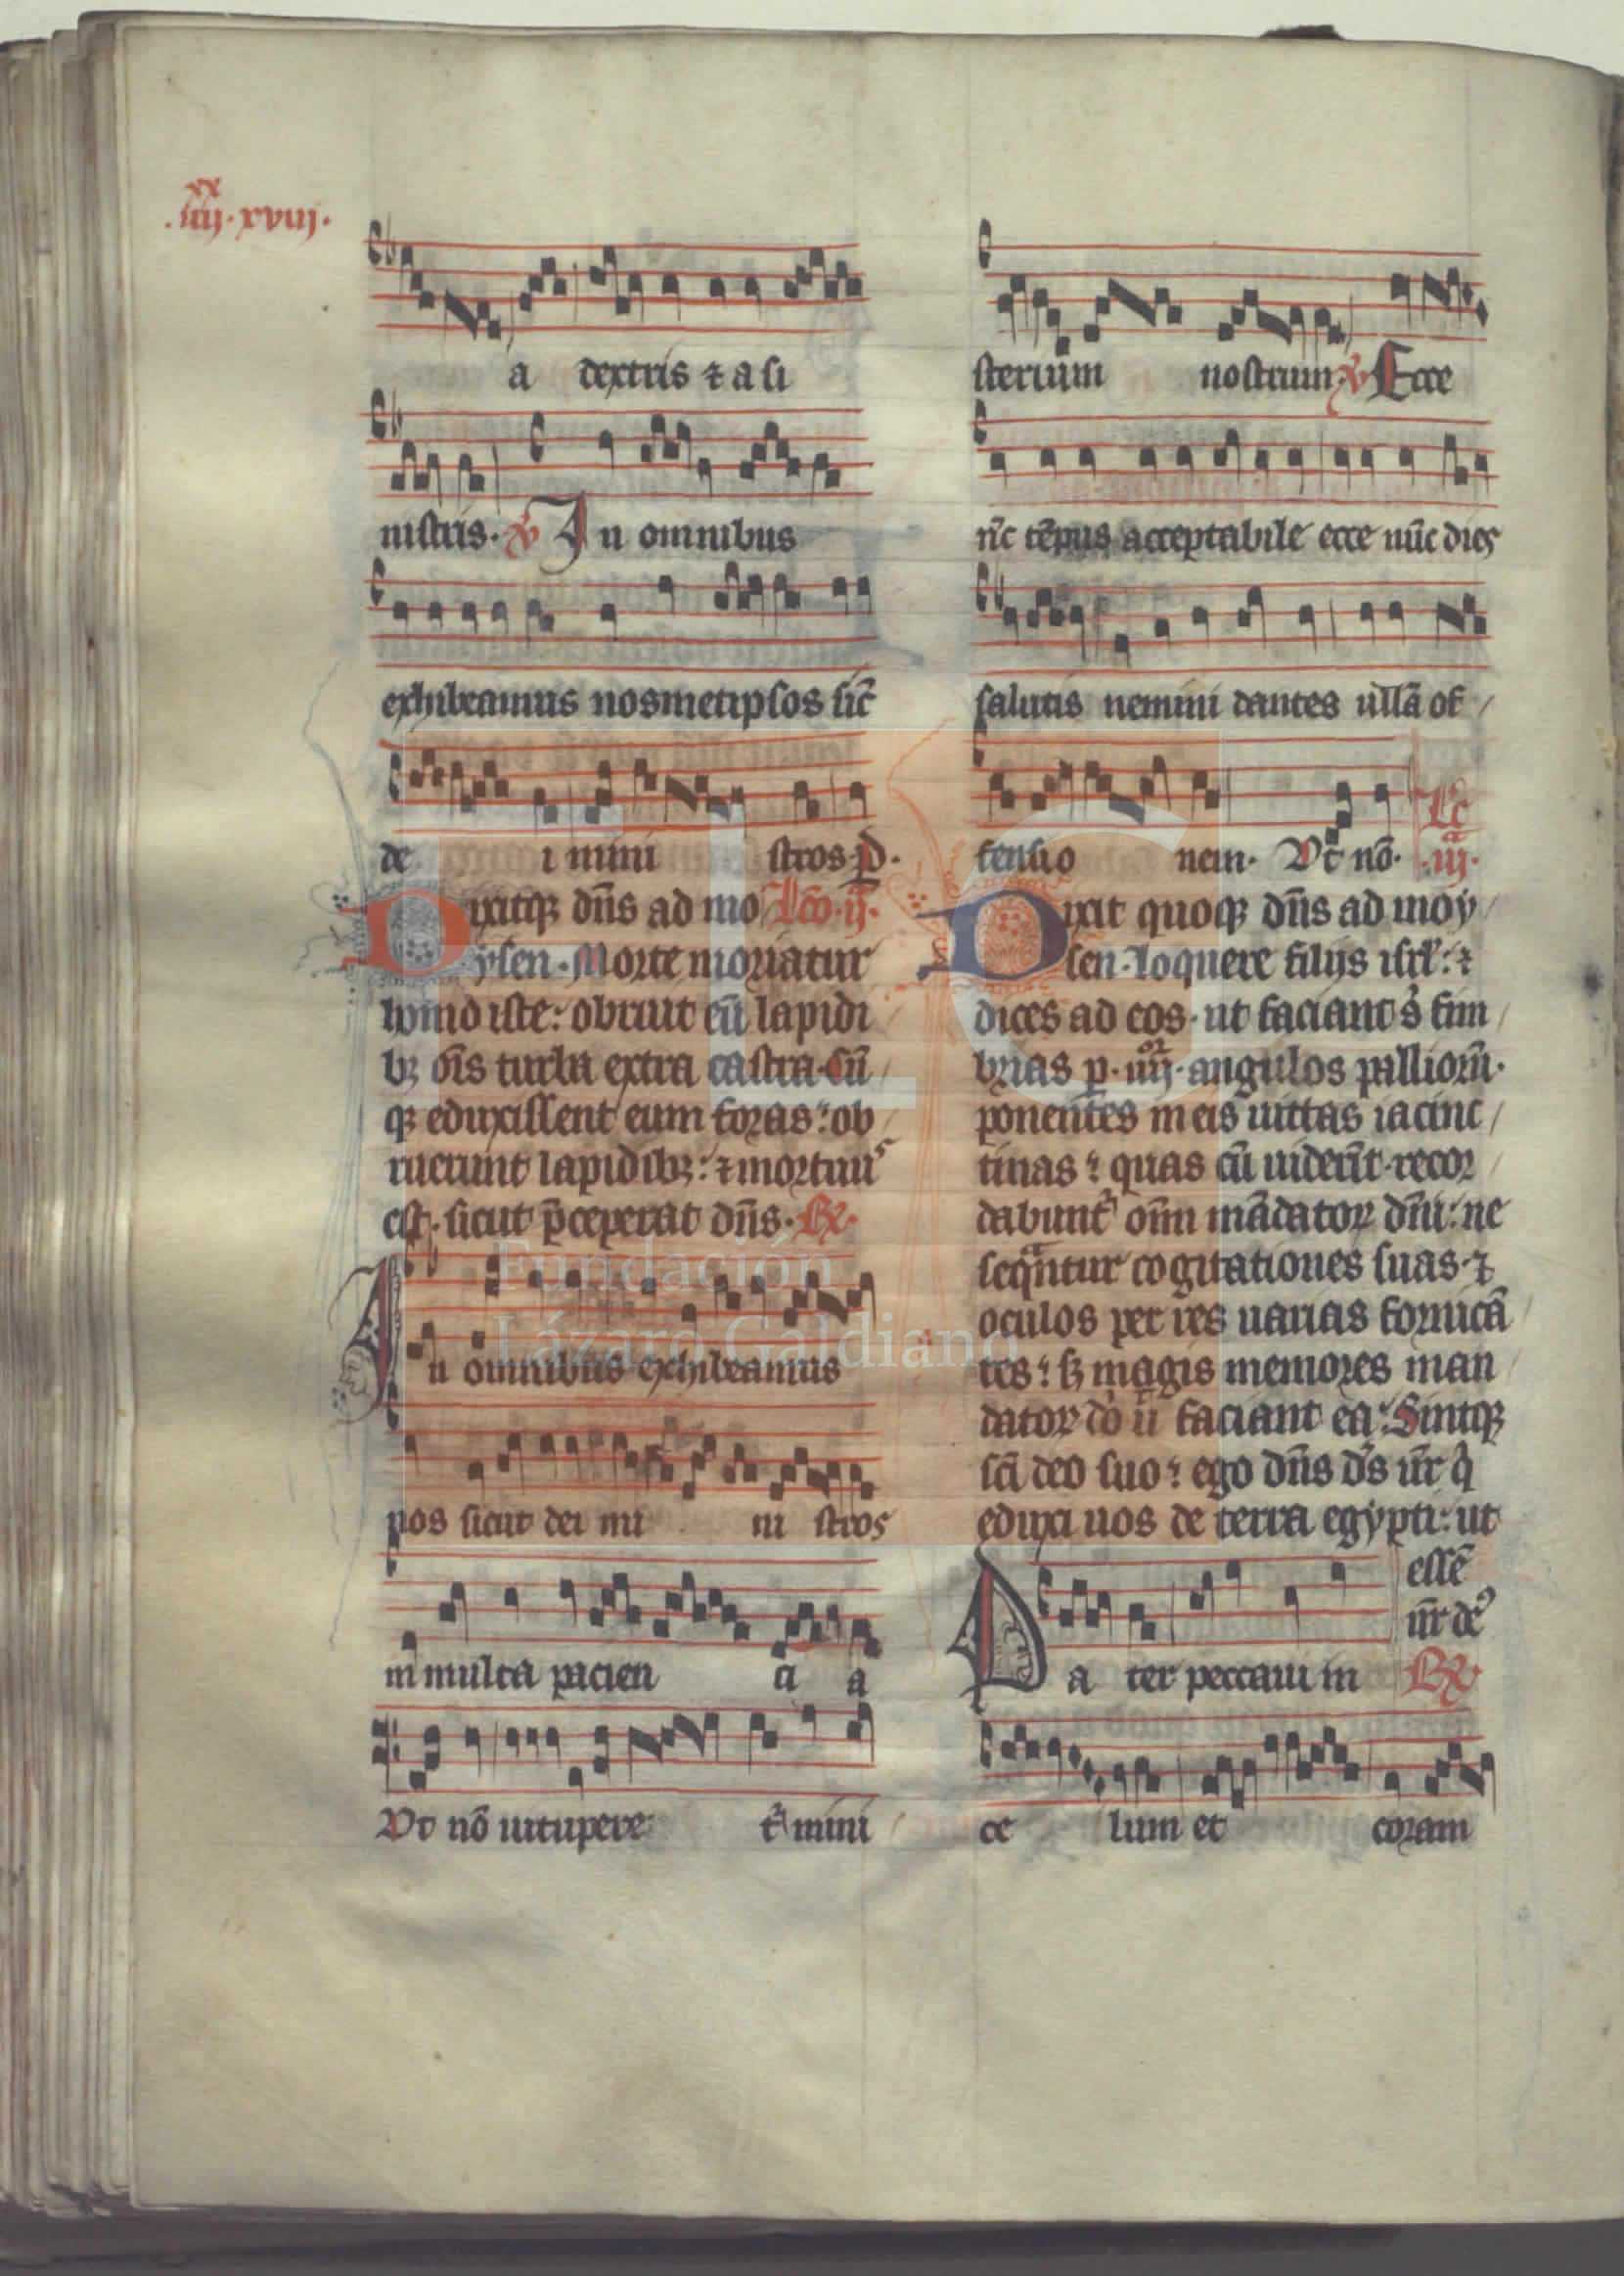 xx
.iiij.xviij.
a dextris ⁊ a si
nistris. ℣ In omnibus
exhibeamus nosmetipsos sic̄
de i mini stros. P̄.
Dixitq; dn̄s ad mo Lc̄o.ij.
ysen. Morte moriatur
homo iste: obruat eū lapidi
b; om̄is turba extra castra. Cū
q; eduxissent eum foras: ob
ruerunt lapidib;: ⁊ mortuus
est. sicut p̄ceperat dn̄s. ℟.
In omnibus exhibeamus
pos sicut dei mi ni stros
in multa pacien ci a
Vt nō uitupere t̄ mini
sterium nostrum. ℣ Ecce
nc̄ tēpus acceptabile ecce nūc dies
salutis nemini dantes ullā of
fensio nem. Vt nō. Lc̄ .iij.
Dixit quoq; dn̄s ad moy
sen. loquere filijs isrl̄: ⁊
dices ad eos. ut faciant s̄ fim
brias p. iiijor. angulos palliorū.
ponentes in eis uittas iacinc
tinas: quas cū uiderīt. recor
dabunt̄ om̄i mādatoꝝ dn̄i: ne
seqantur cogitationes suas. ⁊
oculos per res uarias fornicā
tes: s; magis memores man
datoꝝ dn̄i faciant ea. Sintq;
sc̄i deo suo: ego dn̄s ds̄ ur̄ q̄
eduxi uos de terra egypti: ut
essē
ur̄ de9
Pa ter peccaui in ℟
ce lum et coram
Fundación
Lázaro Galdiano
FLG